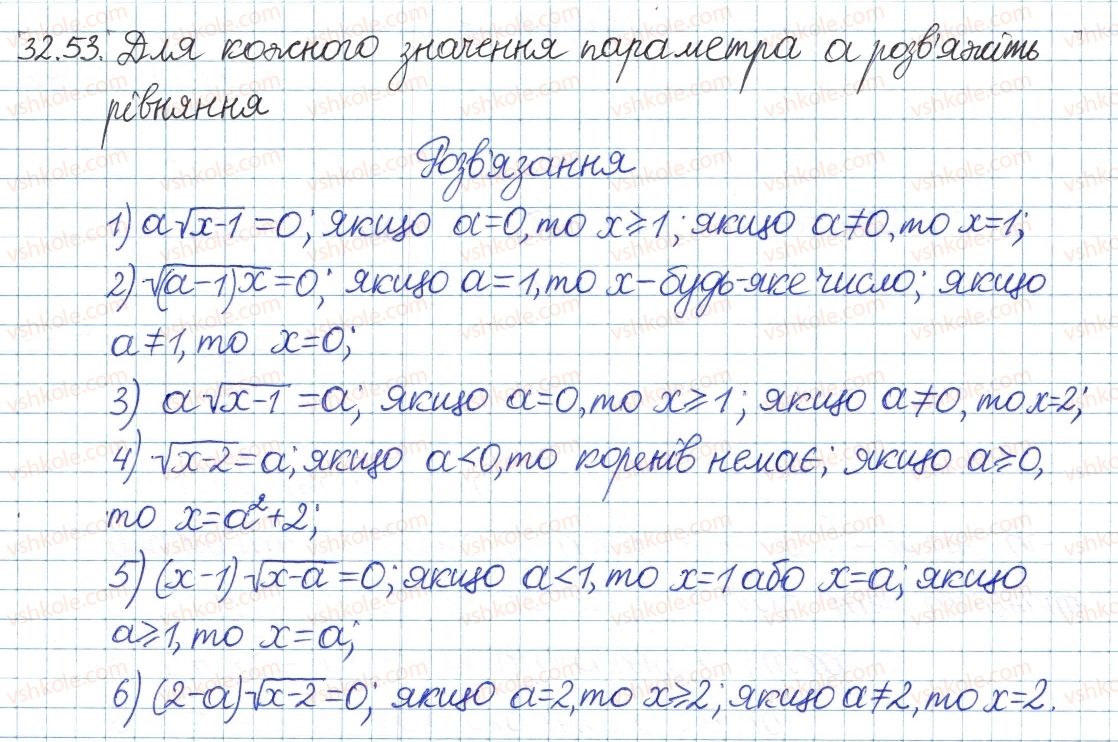 32.53. Для кожного значення параметра a розв'яжіть
рівняння
Розв'язання
1) a√(x-1) = 0; якщо a=0, то x≥1; якщо a≠0, то x=1;
2) √((a-1)x) = 0; якщо a=1, то x – будь-яке число; якщо
a≠1, то x=0;
3) a√(x-1) = a; якщо a=0, то x≥1; якщо a≠0, то x=2;
4) √(x-2) = a; якщо a<0, то коренів немає; якщо a≥0,
то x=a²+2;
5) (x-1)√(x-a) = 0; якщо a<1, то x=1 або x=a; якщо
a≥1, то x=a;
6) (2-a)√(x-2) = 0; якщо a=2, то x≥2; якщо a≠2, то x=2.